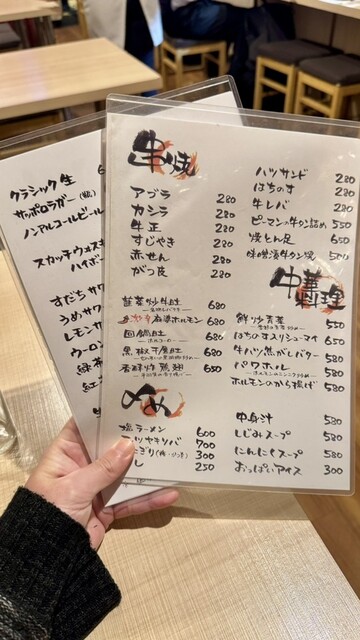 クラシック生
サッポロラガー(瓶)
ノンアルコールビール
スカッチウイスキ
ハイボー
すだちサワ
うめサワ
レモンサ
ウーロン
緑茶
紅
串焼
アブラ 280
カシラ 280
牛正 280
すじやき 280
赤せん 280
がつ皮 280
ハツサンド 280
はちのす 280
牛レバ 280
ピーマンの牛タン詰め 550
焼とん足 650
味噌漬牛タン焼 500
韮菜炒牛肚 680
麻婆ホルモン 680
回鍋肚 680
黒椒干屋肚 680
香酥炸鶏翅 650
中華料理
鮮炒青菜 550
はちのすスリショーマイ 650
牛ハツ焦がしバター 580
パワホル 580
ホルモンのから揚げ 580
〆め
塩ラーメン 600
ツヤキソバ 700
ぎり 300
し 250
中身汁 580
しじみスープ 580
にんにくスープ 580
おっぱいアイス 300